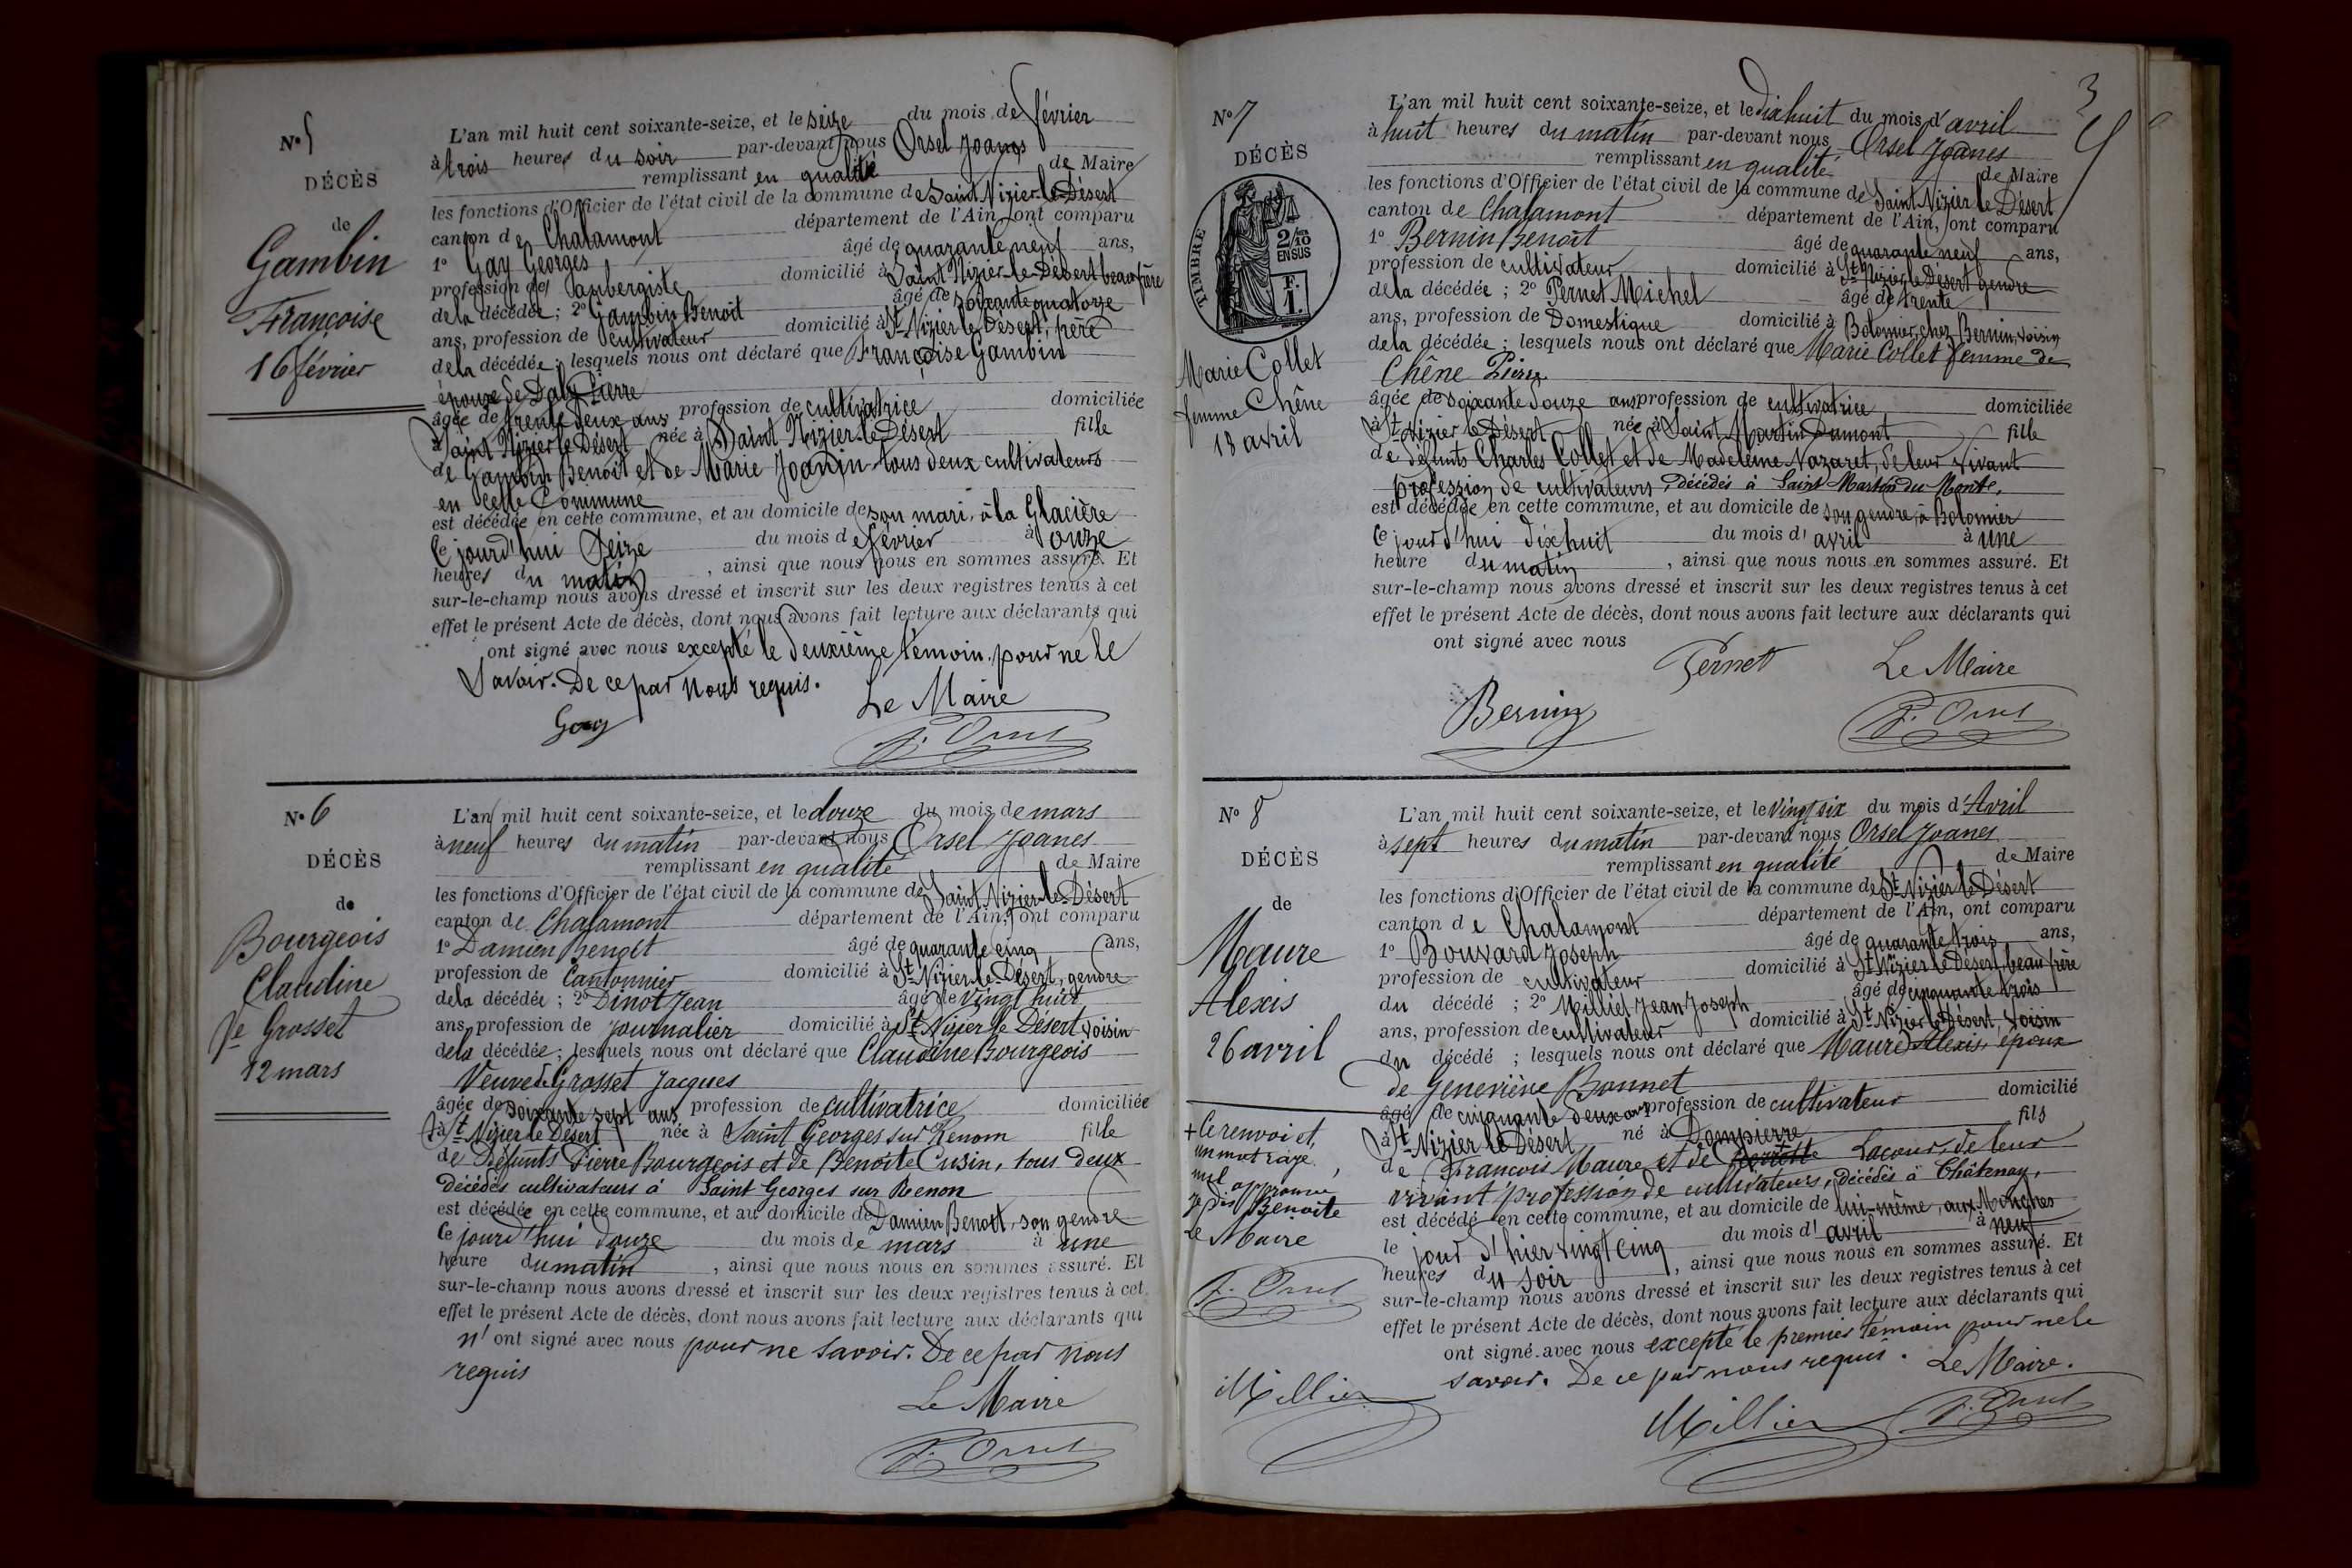 N° 5
DÉCÈS
de
Gambin
Françoise
16 février
L'an mil huit cent soixante-seize, et le seize du mois de février
à trois heures du soir par-devant nous Orsel Joanes
remplissant en qualité de Maire
les fonctions d'Officier de l'état civil de la commune de Saint Nizier-le-Désert
canton de Chalamont département de l'Ain, ont comparu
1° Gay Georges âgé de quarante neuf ans,
profession de aubergiste domicilié à Saint Nizier-le-Désert beau frère
de la décédée ; 2° Gambin Benoit âgé de soixante quatorze
ans, profession de cultivateur domicilié à St Nizier le Désert, père
de la décédée ; lesquels nous ont déclaré que Françoise Gambin
épouse de Pierre
âgée de trente deux ans profession de cultivatrice domiciliée
à Saint Nizier le Désert née à Saint Nizier-le-Désert fille
de Gambin Benoit et de Marie Joanin tous deux cultivateurs
en cette Commune
est décédée en cette commune, et au domicile de son mari, à la Glacière
ce jourd'hui Seize du mois de février à onze
heures du matin, ainsi que nous nous en sommes assuré. Et
sur-le-champ nous avons dressé et inscrit sur les deux registres tenus à cet
effet le présent Acte de décès, dont nous avons fait lecture aux déclarants qui
ont signé avec nous excepté le deuxième témoin pour ne le
Savoir. De ce par nous requis.
Gay
Le Maire
J. Orsel
N° 6
DÉCÈS
de
Bourgeois
Claudine
Ve Grosset
12 mars
L'an mil huit cent soixante-seize, et le douze du mois de mars
à neuf heures du matin par-devant nous Orsel Joanes
remplissant en qualité de Maire
les fonctions d'Officier de l'état civil de la commune de Saint Nizier-le-Désert
canton de Chalamont département de l'Ain, ont comparu
1° Damien Benoît âgé de quarante cinq ans,
profession de Cantonnier domicilié à St Nizier-le-Désert, gendre
de la décédée ; 2° Dinot Jean âgé de Vingt huit
ans, profession de journalier domicilié à St Nizier le Désert voisin
de la décédée ; lesquels nous ont déclaré que Claudine Bourgeois
Veuve de Grosset Jacques
âgée de soixante sept ans profession de cultivatrice domiciliée
à St Nizier le Désert née à Saint Georges sur Renom fille
de Défunts Pierre Bourgeois et de Benoîte Cusin, tous deux
décédés cultivateurs à Saint Georges sur Renon
est décédée en cette commune, et au domicile de Damien Benoit, son gendre
ce jourd'hui douze du mois de mars à une
heure du matin, ainsi que nous nous en sommes assuré. Et
sur-le-champ nous avons dressé et inscrit sur les deux registres tenus à cet
effet le présent Acte de décès, dont nous avons fait lecture aux déclarants qui
n'ont signé avec nous pour ne savoir. De ce par nous
requis
Le Maire
J. Orsel
3
N° 7
DÉCÈS
TIMBRE
2/10
EN SUS
F.
1.
Marie Collet
femme Chêne
18 avril
L'an mil huit cent soixante-seize, et le dix huit du mois d'avril
à huit heures du matin par-devant nous Orsel Joanes
remplissant en qualité de Maire
les fonctions d'Officier de l'état civil de la commune de Saint Nizier le Désert
canton de Chalamont département de l'Ain, ont comparu
1° Bernin Benoît âgé de quarante neuf ans,
profession de cultivateur domicilié à St Nizier le Désert gendre
de la décédée ; 2° Pernet Michel âgé de trente
ans, profession de Domestique domicilié à Bolomier, chez Bernin, voisin
de la décédée ; lesquels nous ont déclaré que Marie Collet femme de
Chêne Pierre
âgée de soixante douze ans profession de cultivatrice domiciliée
à St Nizier le Désert née à Saint Martin Dumont fille
de défunts Charles Collet et de Madeleine Nazaret, de leur vivant
profession de cultivateurs, décédés à Saint Martin du Mont.
est décédée en cette commune, et au domicile de son gendre, à Bolomier
ce jourd'hui dix huit du mois d'avril à une
heure du matin, ainsi que nous nous en sommes assuré. Et
sur-le-champ nous avons dressé et inscrit sur les deux registres tenus à cet
effet le présent Acte de décès, dont nous avons fait lecture aux déclarants qui
ont signé avec nous
Pernet Le Maire
Bernin J. Orsel
N° 8
DÉCÈS
de
Maure
Alexis
26 avril
+ Ce renvoi et,
un mot rayé
nul approuvé
Je dis Benoite
Le Maire
J. Orsel
Millier
L'an mil huit cent soixante-seize, et le Vingt six du mois d'Avril
à sept heures du matin par-devant nous Orsel Joanes
remplissant en qualité de Maire
les fonctions d'Officier de l'état civil de la commune de St Nizier le Désert
canton de Chalamont département de l'Ain, ont comparu
1° Bouvard Joseph âgé de quarante trois ans,
profession de cultivateur domicilié à St Nizier le Désert, beau frère
du décédé ; 2° Millier Jean Joseph âgé de cinquante trois
ans, profession de cultivateur domicilié à St Nizier le Désert, voisin
du décédé ; lesquels nous ont déclaré que Maure Alexis, époux
de Geneviève Bonnet
âgé de cinquante deux ans profession de cultivateur domicilié
à St Nizier le Désert né à Dompierre fils
de François Maure et de + Lacour, de leur
vivant profession de cultivateurs, décédés à Châtenay,
est décédé en cette commune, et au domicile de lui-même, aux
le jour d'hier vingt cinq du mois d'avril à neuf
heures du soir, ainsi que nous nous en sommes assuré. Et
sur-le-champ nous avons dressé et inscrit sur les deux registres tenus à cet
effet le présent Acte de décès, dont nous avons fait lecture aux déclarants qui
ont signé avec nous excepté le premier témoin pour ne le
savoir. De ce par nous requis. Le Maire.
Millier J. Orsel